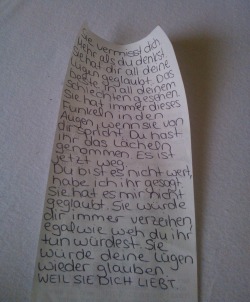 Sie vermisst dich
Mehr als du denkst
Sie hat dir all deine
Lügen geglaubt. Das
beste in all deinem
schlechten gesehen.
Sie hat immer dieses
Funkeln in den
Augen, wenn sie von
dir spricht. Du hast
ihr das Lächeln
genommen. Es ist
jetzt weg.
Du bist es nicht wert,
habe ich ihr gesagt
sie hat es mir nicht
geglaubt. Sie würde
dir immer verzeihen,
egal wie weh du ihr
tun würdest. Sie
würde deine Lügen
wieder glauben
WEIL SIE DICH LIEBT.